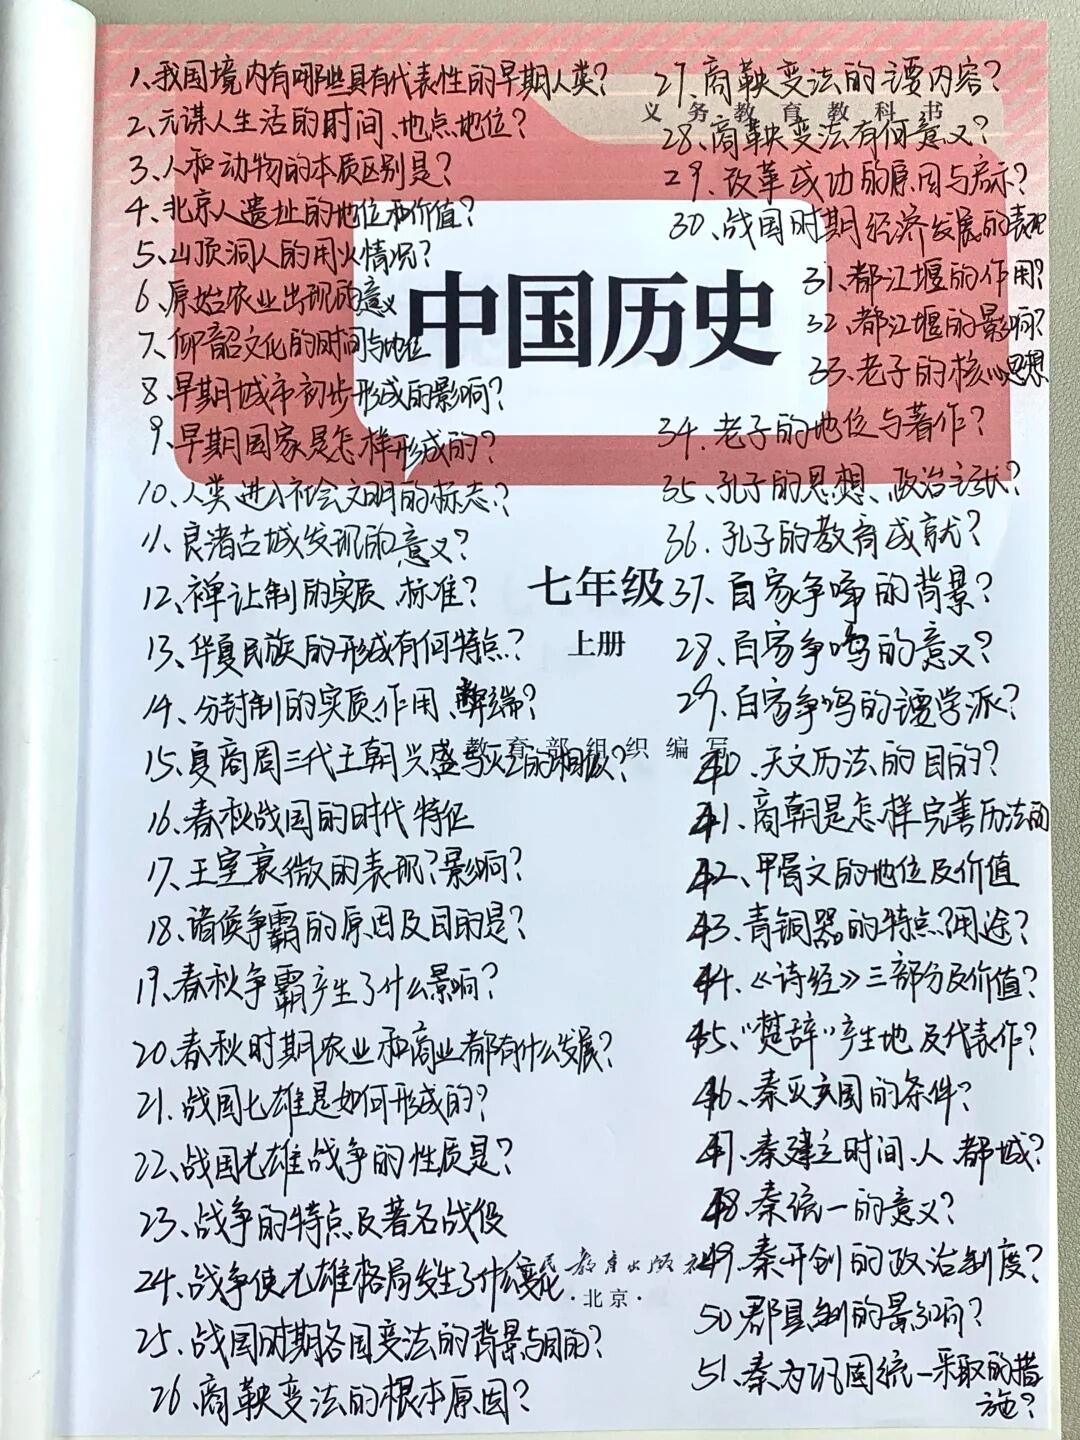 1、我国境内有哪些具有代表性的早期人类?
2、元谋人生活的时间、地点、地位?
3、人和动物的本质区别是?
4、北京人遗址的地位和价值?
5、山顶洞人的用火情况?
6、原始农业出现的意义
7、仰韶文化的时间与地位
8、早期城市初步形成的影响?
9、早期国家是怎样形成的?
10、人类进入社会文明的标志?
11、良渚古城发现的意义?
12、禅让制的实质、标准?
13、华夏民族的形成有何特点?
14、分封制的实质、作用、弊端?
15、夏商周三代王朝兴盛与灭亡的相似?
16、春秋战国的时代特征
17、王室衰微的表现?影响?
18、诸侯争霸的原因及目的是?
19、春秋争霸产生了什么影响?
20、春秋时期农业和商业都有什么发展?
21、战国七雄是如何形成的?
22、战国七雄战争的性质是?
23、战争的特点及著名战役
24、战争使七雄格局发生了什么变化
25、战国时期各国变法的背景与目的?
26、商鞅变法的根本原因?
义务教育教科书
中国历史
七年级
上册
教育部组织编写
人民教育出版社
·北京·
27、商鞅变法的主要内容?
28、商鞅变法有何意义?
29、改革成功的原因与启示?
30、战国时期经济发展的表现
31、都江堰的作用?
32、都江堰的影响?
33、老子的核心思想
34、老子的地位与著作?
35、孔子的思想、政治主张?
36、孔子的教育成就?
37、百家争鸣的背景?
28、百家争鸣的意义?
29、百家争鸣的主要学派?
40、天文历法的目的?
41、商朝是怎样完善历法的
42、甲骨文的地位及价值
43、青铜器的特点?用途?
44、《诗经》三部分及价值?
45、"楚辞"产生地及代表作?
46、秦灭六国的条件?
47、秦建立时间、人、都城?
48、秦统一的意义?
49、秦开创的政治制度?
50 郡县制的影响?
51、秦为巩固统一采取的措
施?